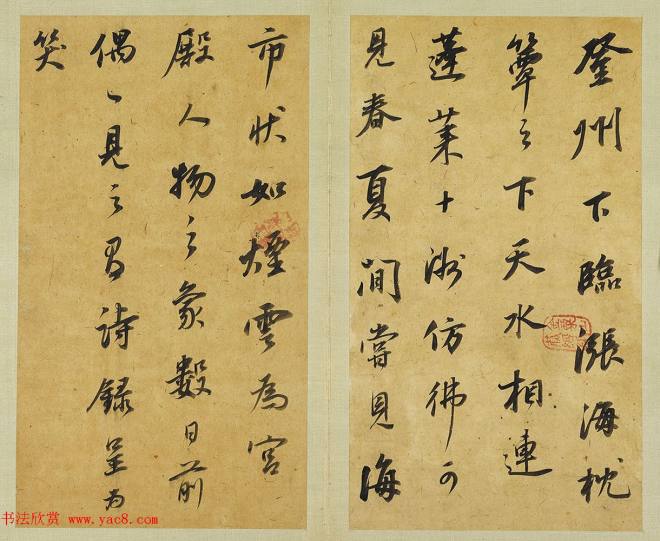 登州下臨漲海枕
簟之下天水相連
蓬莱十洲仿彿可
見春夏間嘗見海
市状如煙雲為宮
殿人物之象數日前
偶〻見之有詩錄呈為
笑
书法欣赏 www.yac8.com